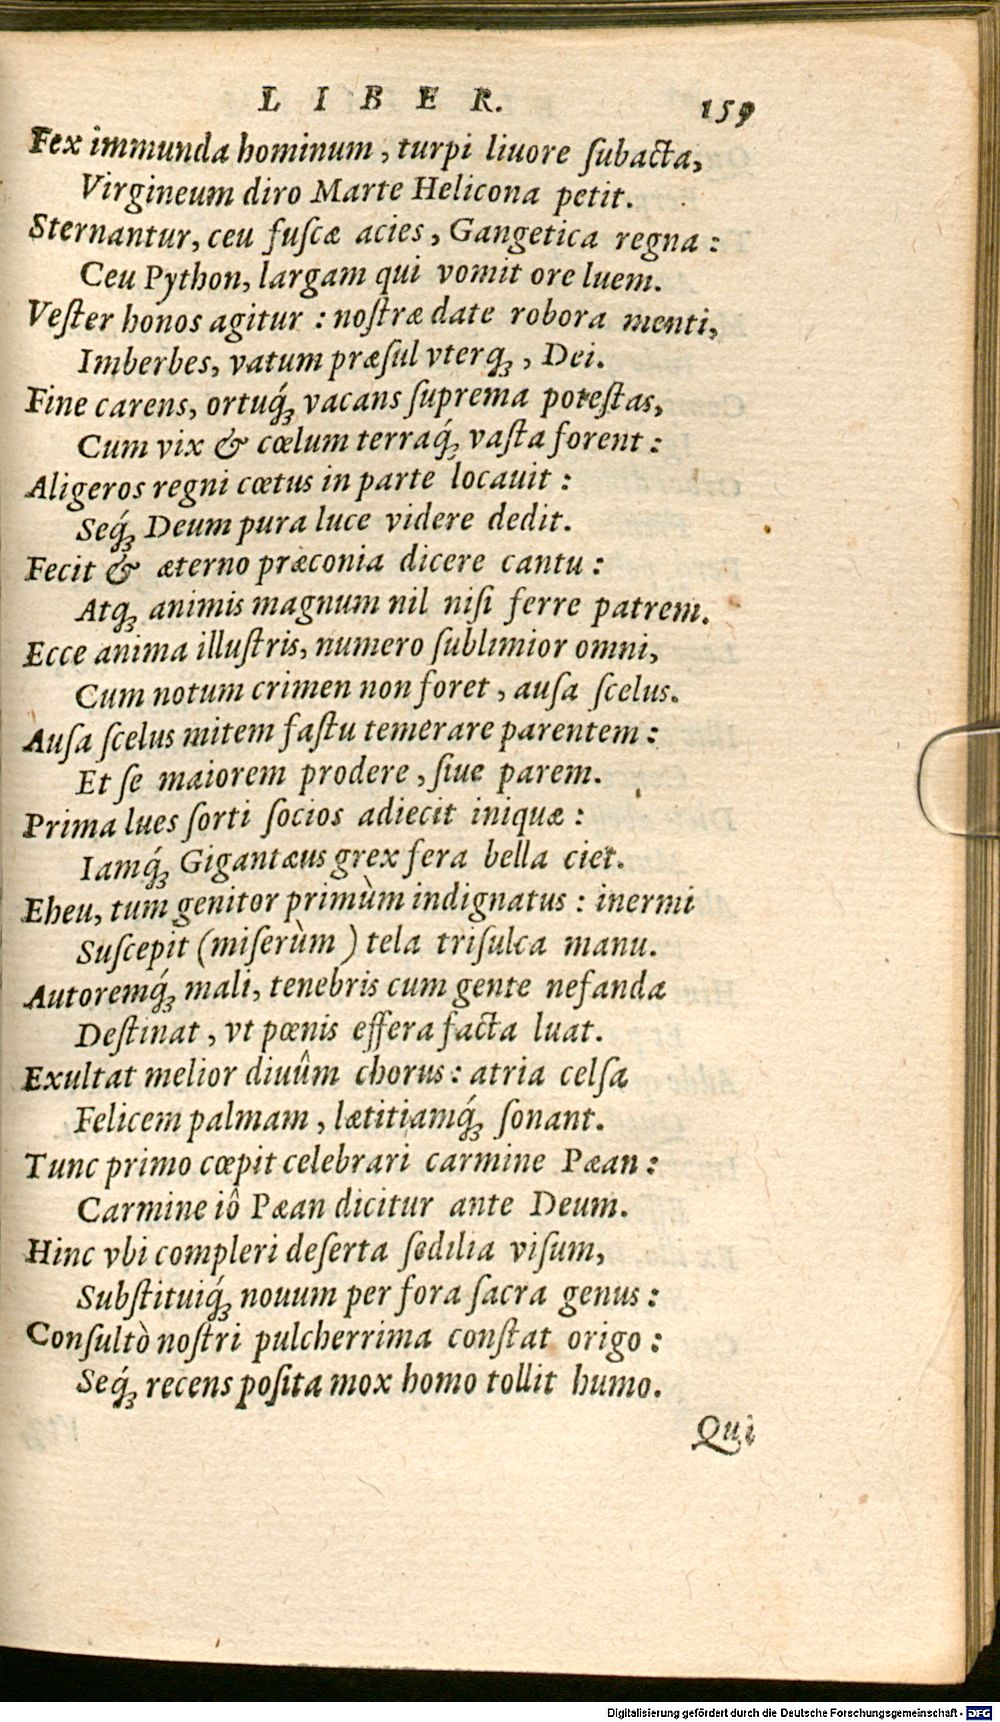 LIBER. 159
Fex immunda hominum, turpi liuore ſubacta,
Virgineum diro Marte Helicona petit.
Sternantur, ceu fuſcæ acies, Gangetica regna:
Ceu Python, largam qui vomit ore luem.
Veſter honos agitur: noſtræ date robora menti,
Imberbes, vatum præſul vterq́ꝫ, Dei.
Fine carens, ortuq́ꝫ vacans ſuprema poteſtas,
Cum vix & cœlum terraq́ꝫ vaſta forent:
Aligeros regni cœtus in parte locauit:
Seq́ꝫ Deum pura luce videre dedit.
Fecit & æterno præconia dicere cantu:
Atqꝫ animis magnum nil niſi ferre patrem.
Ecce anima illuſtris, numero ſublimior omni,
Cum notum crimen non foret, auſa ſcelus.
Auſa ſcelus mitem faſtu temerare parentem:
Et ſe maiorem prodere, ſiue parem.
Prima lues ſorti ſocios adiecit iniquæ:
Iamq́ꝫ Gigantæus grex fera bella ciet.
Eheu, tum genitor primùm indignatus: inermi
Suſcepit (miſerùm) tela triſulca manu.
Autoremq́ꝫ mali, tenebris cum gente nefanda
Deſtinat, vt pœnis effera facta luat.
Exultat melior diuûm chorus: atria celſa
Felicem palmam, lætitiamq́ꝫ ſonant.
Tunc primo cœpit celebrari carmine Pæan:
Carmine iô Pæan dicitur ante Deum.
Hinc vbi compleri deſerta ſedilia viſum,
Subſtituiq́ꝫ nouum per fora ſacra genus:
Conſultò noſtri pulcherrima conſtat origo:
Seq́ꝫ recens poſita mox homo tollit humo.
Qui
Digitalisierung gefördert durch die Deutsche Forschungsgemeinschaft - DFG